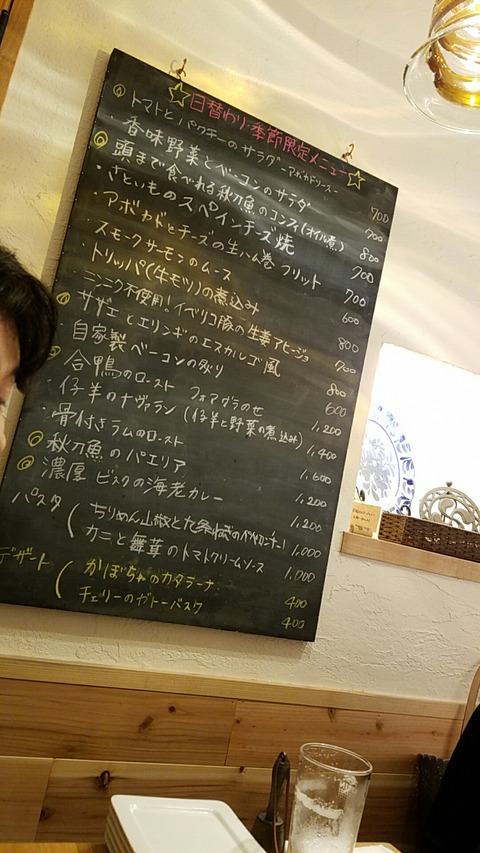 ☆日替わり・季節限定メニュー☆
◎トマトとパクチーのサラダ -アボカドソース- 700
・香味野菜とベーコンのサラダ 700
◎頭まで食べれる秋刀魚のコンフィ(オイル煮) 800
・さといものスペインチーズ焼 700
・アボカドとチーズの生ハム巻フリット 700
・スモークサーモンのムース 600
・トリッパ(牛モツ)の煮込み 800
・ニンニク不使用!イベリコ豚の生姜アヒージョ 700
◎サザエとエリンギのエスカルゴ風 800
・自家製ベーコンの炙り 600
◎合鴨のロースト フォアグラのせ 1,200
・仔羊のナヴァラン(仔羊と野菜の煮込み) 1,400
・骨付きラムのロースト 1,600
◎秋刀魚のパエリア 1,200
◎濃厚ビスクの海老カレー 1,200
パスタ ( ちりめん山椒と九条ねぎのペペロンチーノ 1,000
カニと舞茸のトマトクリームソース 1,000
デザート ( かぼちゃのカタラーナ 400
チェリーのガトーバスク 400